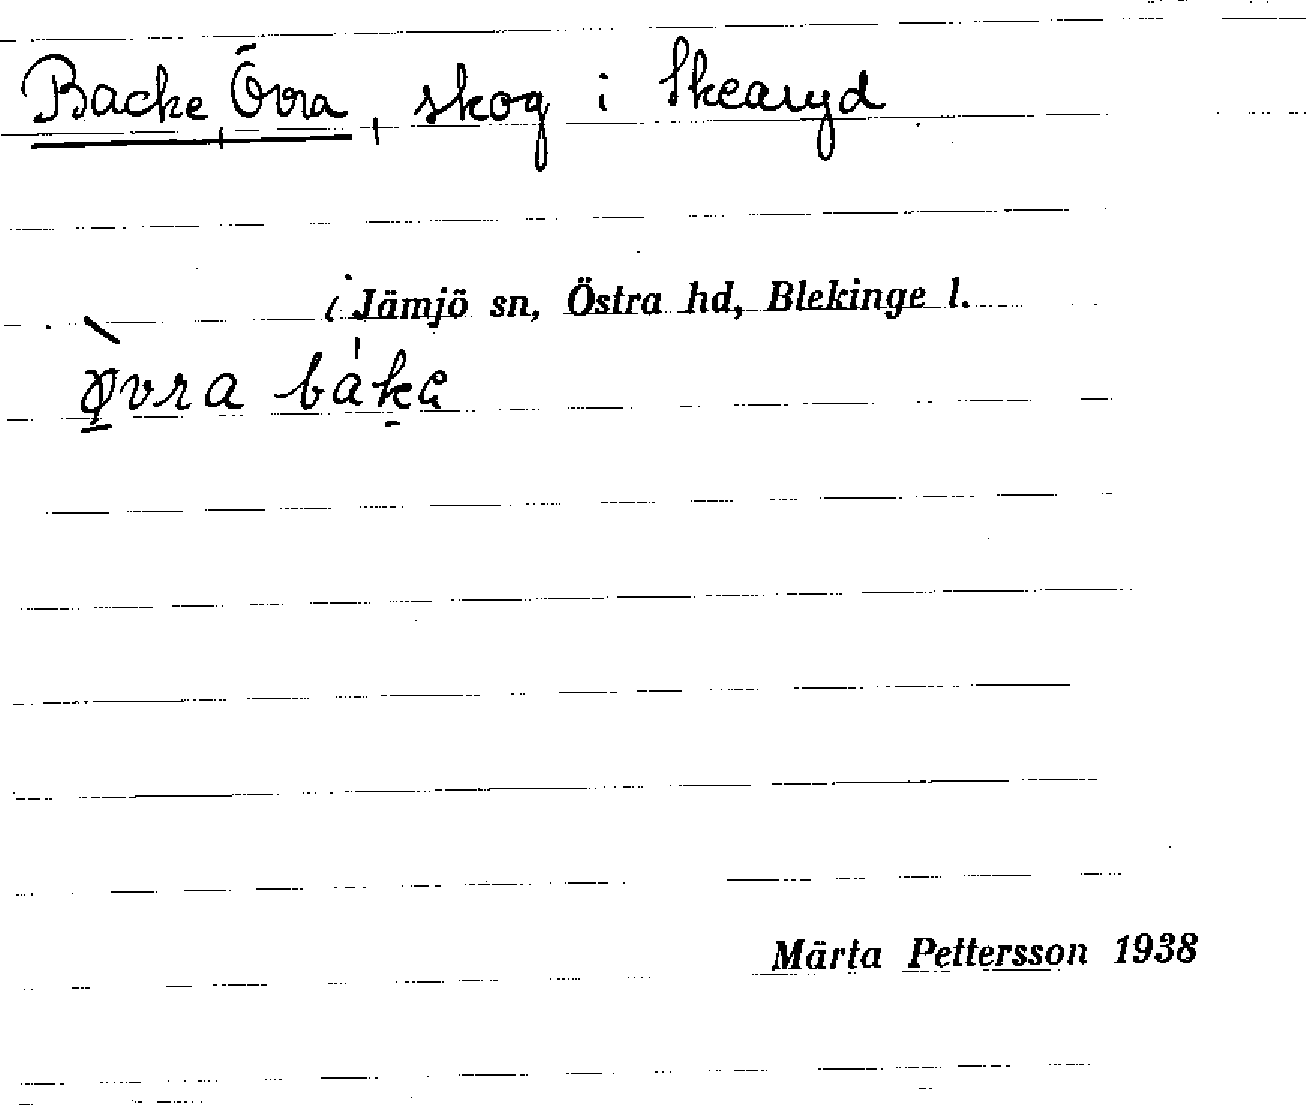 Backe, Övra, skog i Skearyd
i Jämjö sn, Östra hd, Blekinge l.
Märta Pettersson 1938